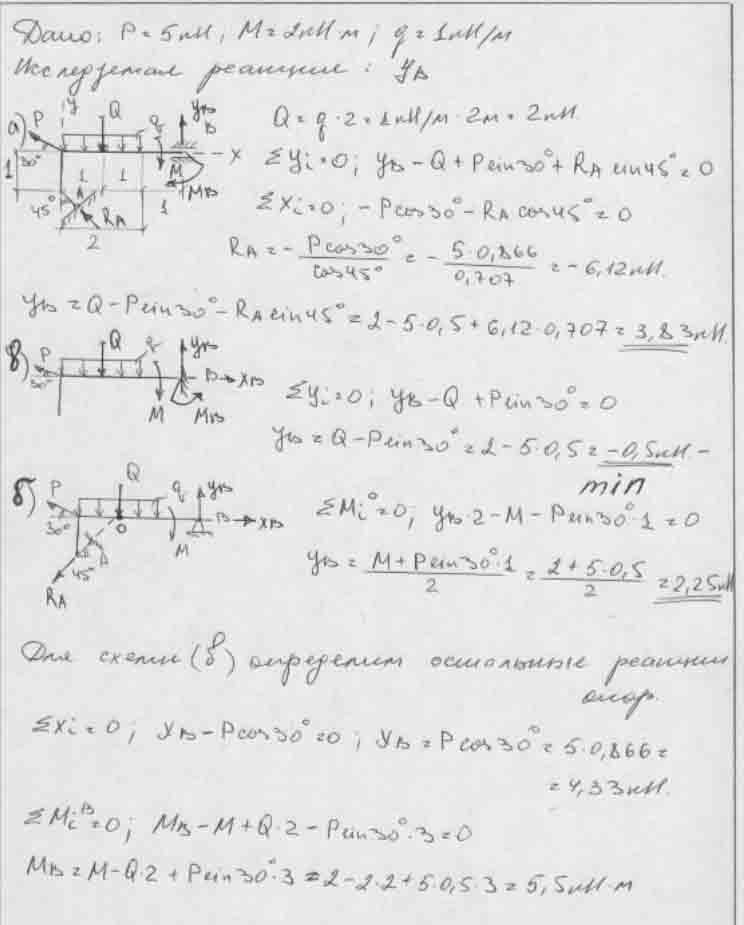 Дано: P = 5 кН; M = 2 кН·м; q = 1 кН/м
Исследуемая реакция: YB
а) P y Q q YB B x
30° M MB
1 1 1 1
45° A RA
2
Q = q·2 = 1 кН/м · 2м = 2 кН.
ΣYi = 0; YB - Q + P sin30° + RA sin45° = 0
ΣXi = 0; -P cos30° - RA cos45° = 0
RA = - P cos30° / cos45° = - 5·0,866 / 0,707 = -6,12 кН.
YB = Q - P sin30° - RA sin45° = 2 - 5·0,5 + 6,12·0,707 = 3,83 кН.
в) P Q q YB
30° B XB
M MB
ΣYi = 0; YB - Q + P sin30° = 0
YB = Q - P sin30° = 2 - 5·0,5 = -0,5 кН. -
min
б) P Q q YB
30° O M B XB
A 45°
RA
ΣMi° = 0; YB·2 - M - P sin30°·1 = 0
YB = M + P sin30°·1 / 2 = 2 + 5·0,5 / 2 = 2,25 кН
Для схемы (в) определим остальные реакции
опор.
ΣXi = 0; XB - P cos30° = 0; XB = P cos30° = 5·0,866 =
= 4,33 кН.
ΣMiB = 0; MB - M + Q·2 - P sin30°·3 = 0
MB = M - Q·2 + P sin30°·3 = 2 - 2·2 + 5·0,5·3 = 5,5 кН·м